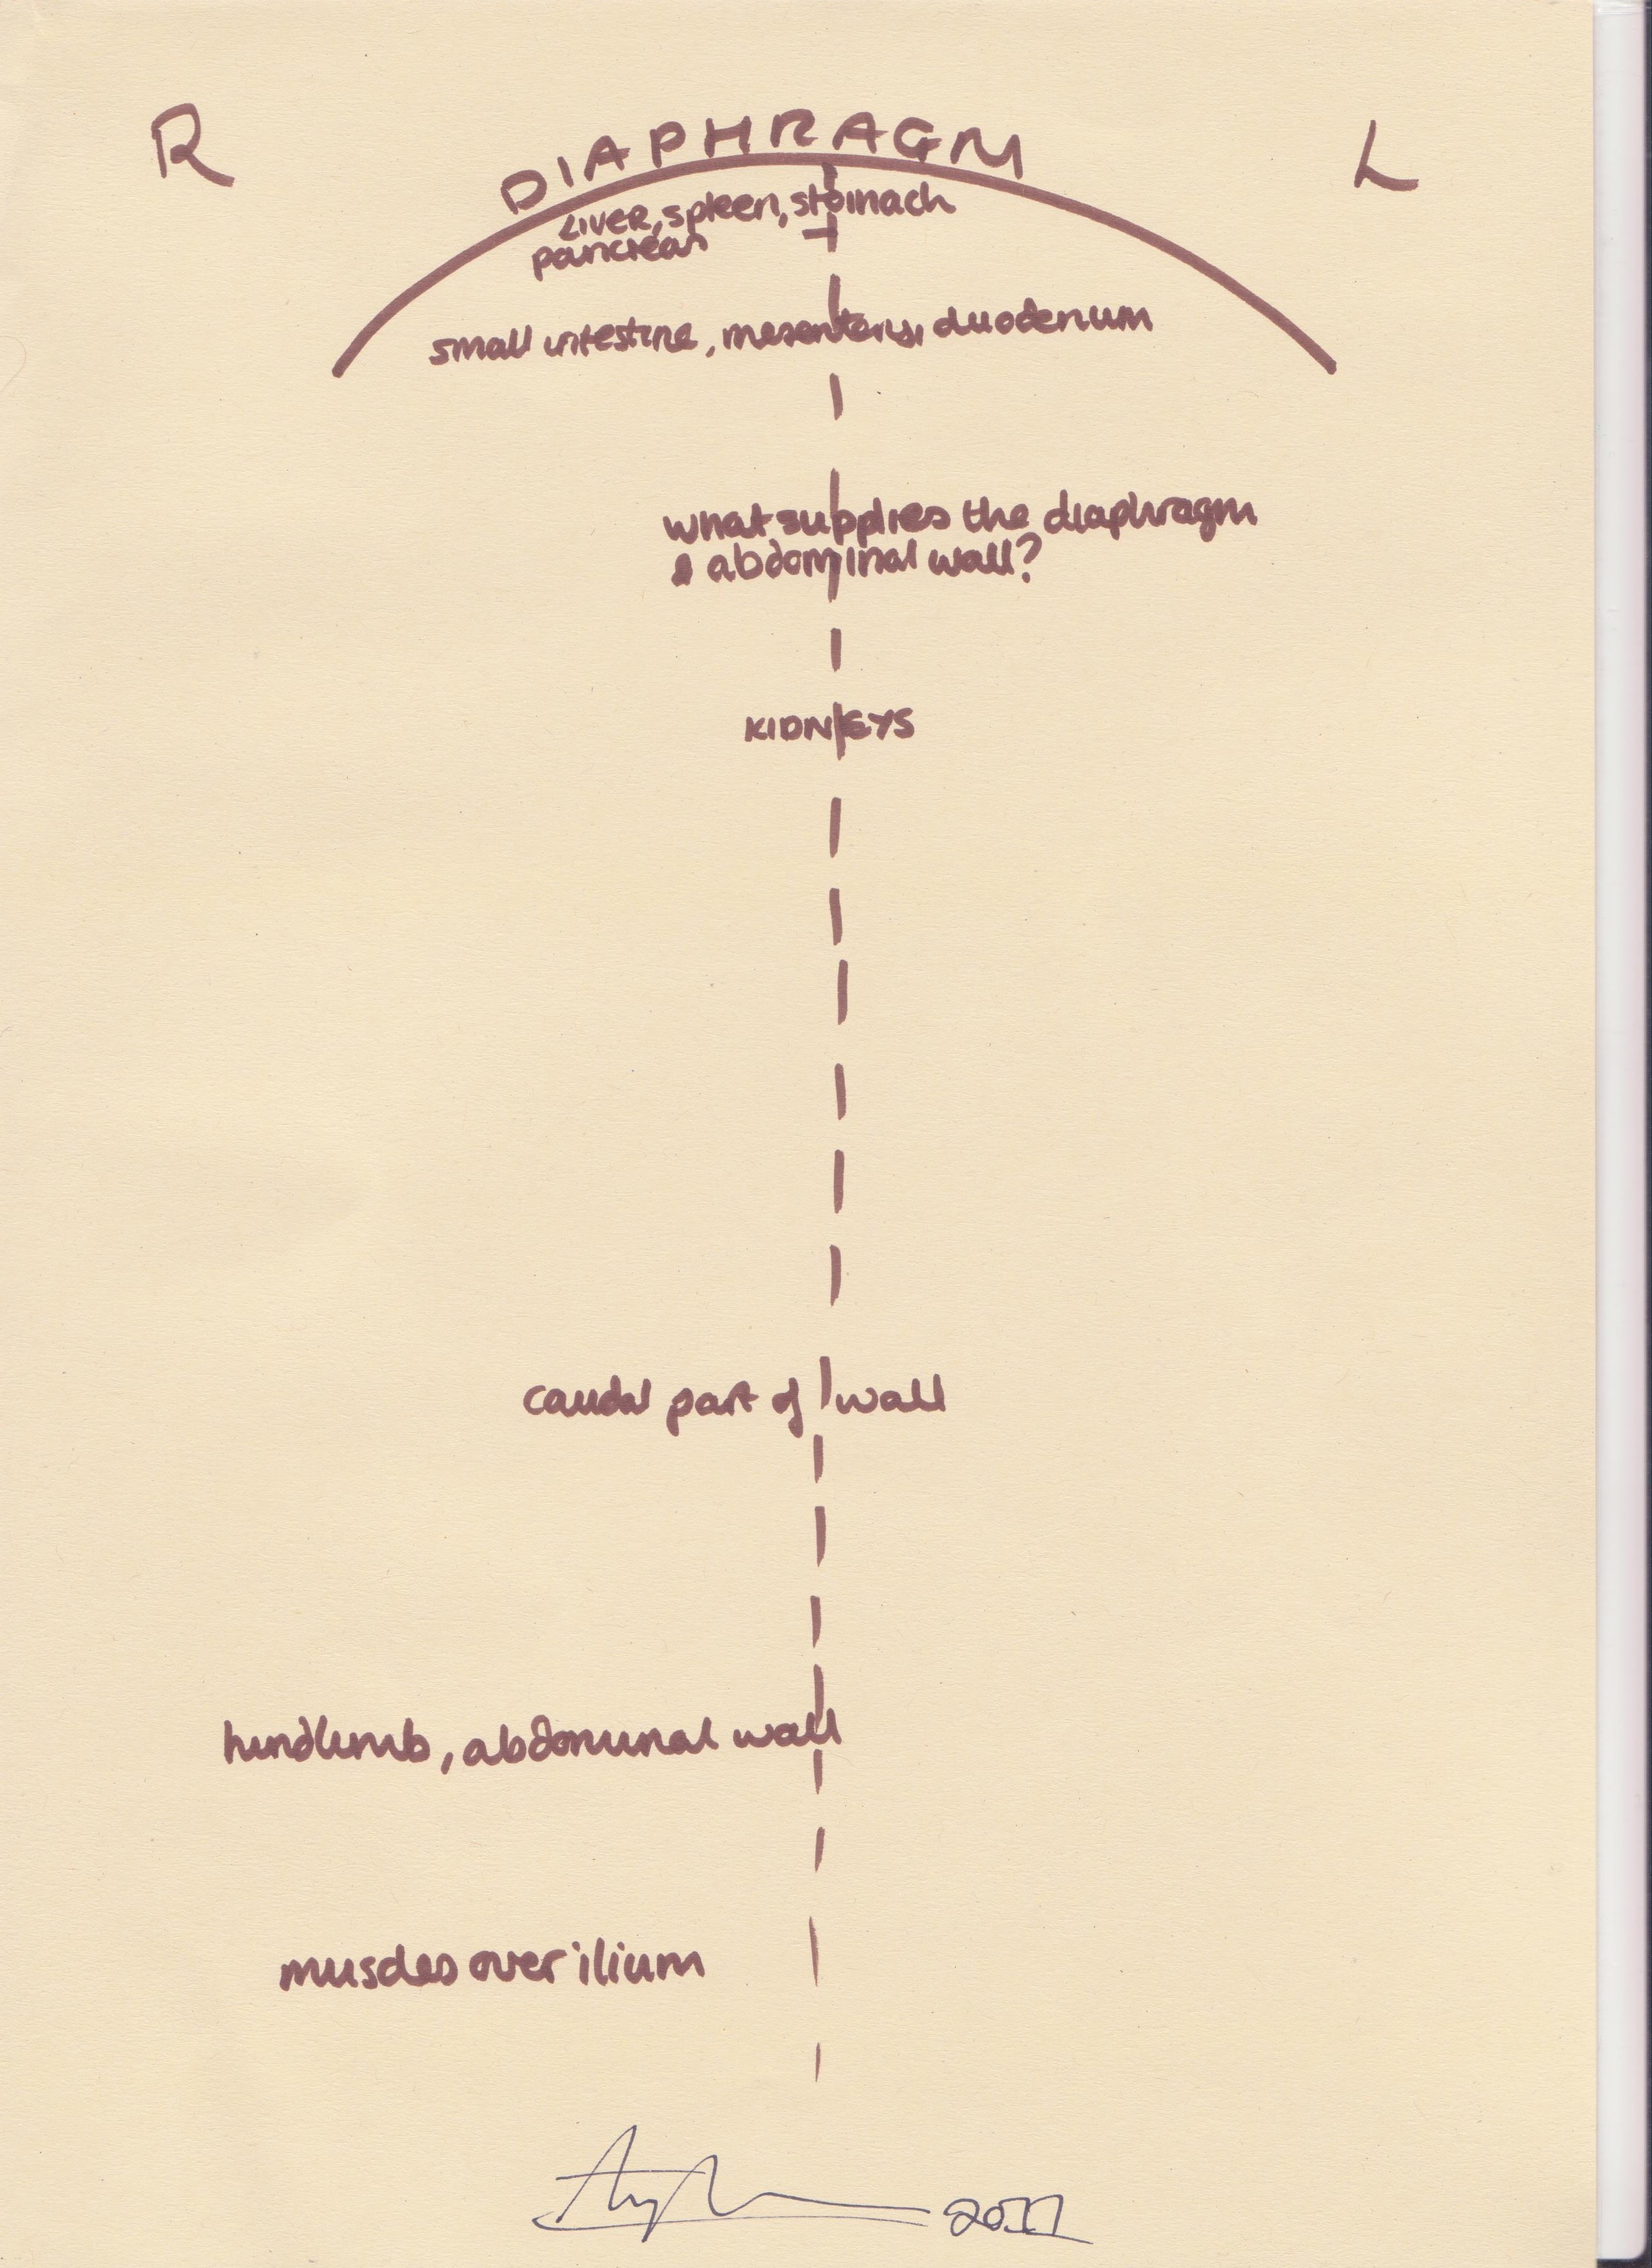 R
L
DIAPHRAGM
LIVER, spleen, stomach
pancreas
small intestine, mesentery, duodenum
what supplies the diaphragm
& abdominal wall?
KIDNEYS
caudal part of wall
hindlimb, abdominal wall
muscles over ilium
2011